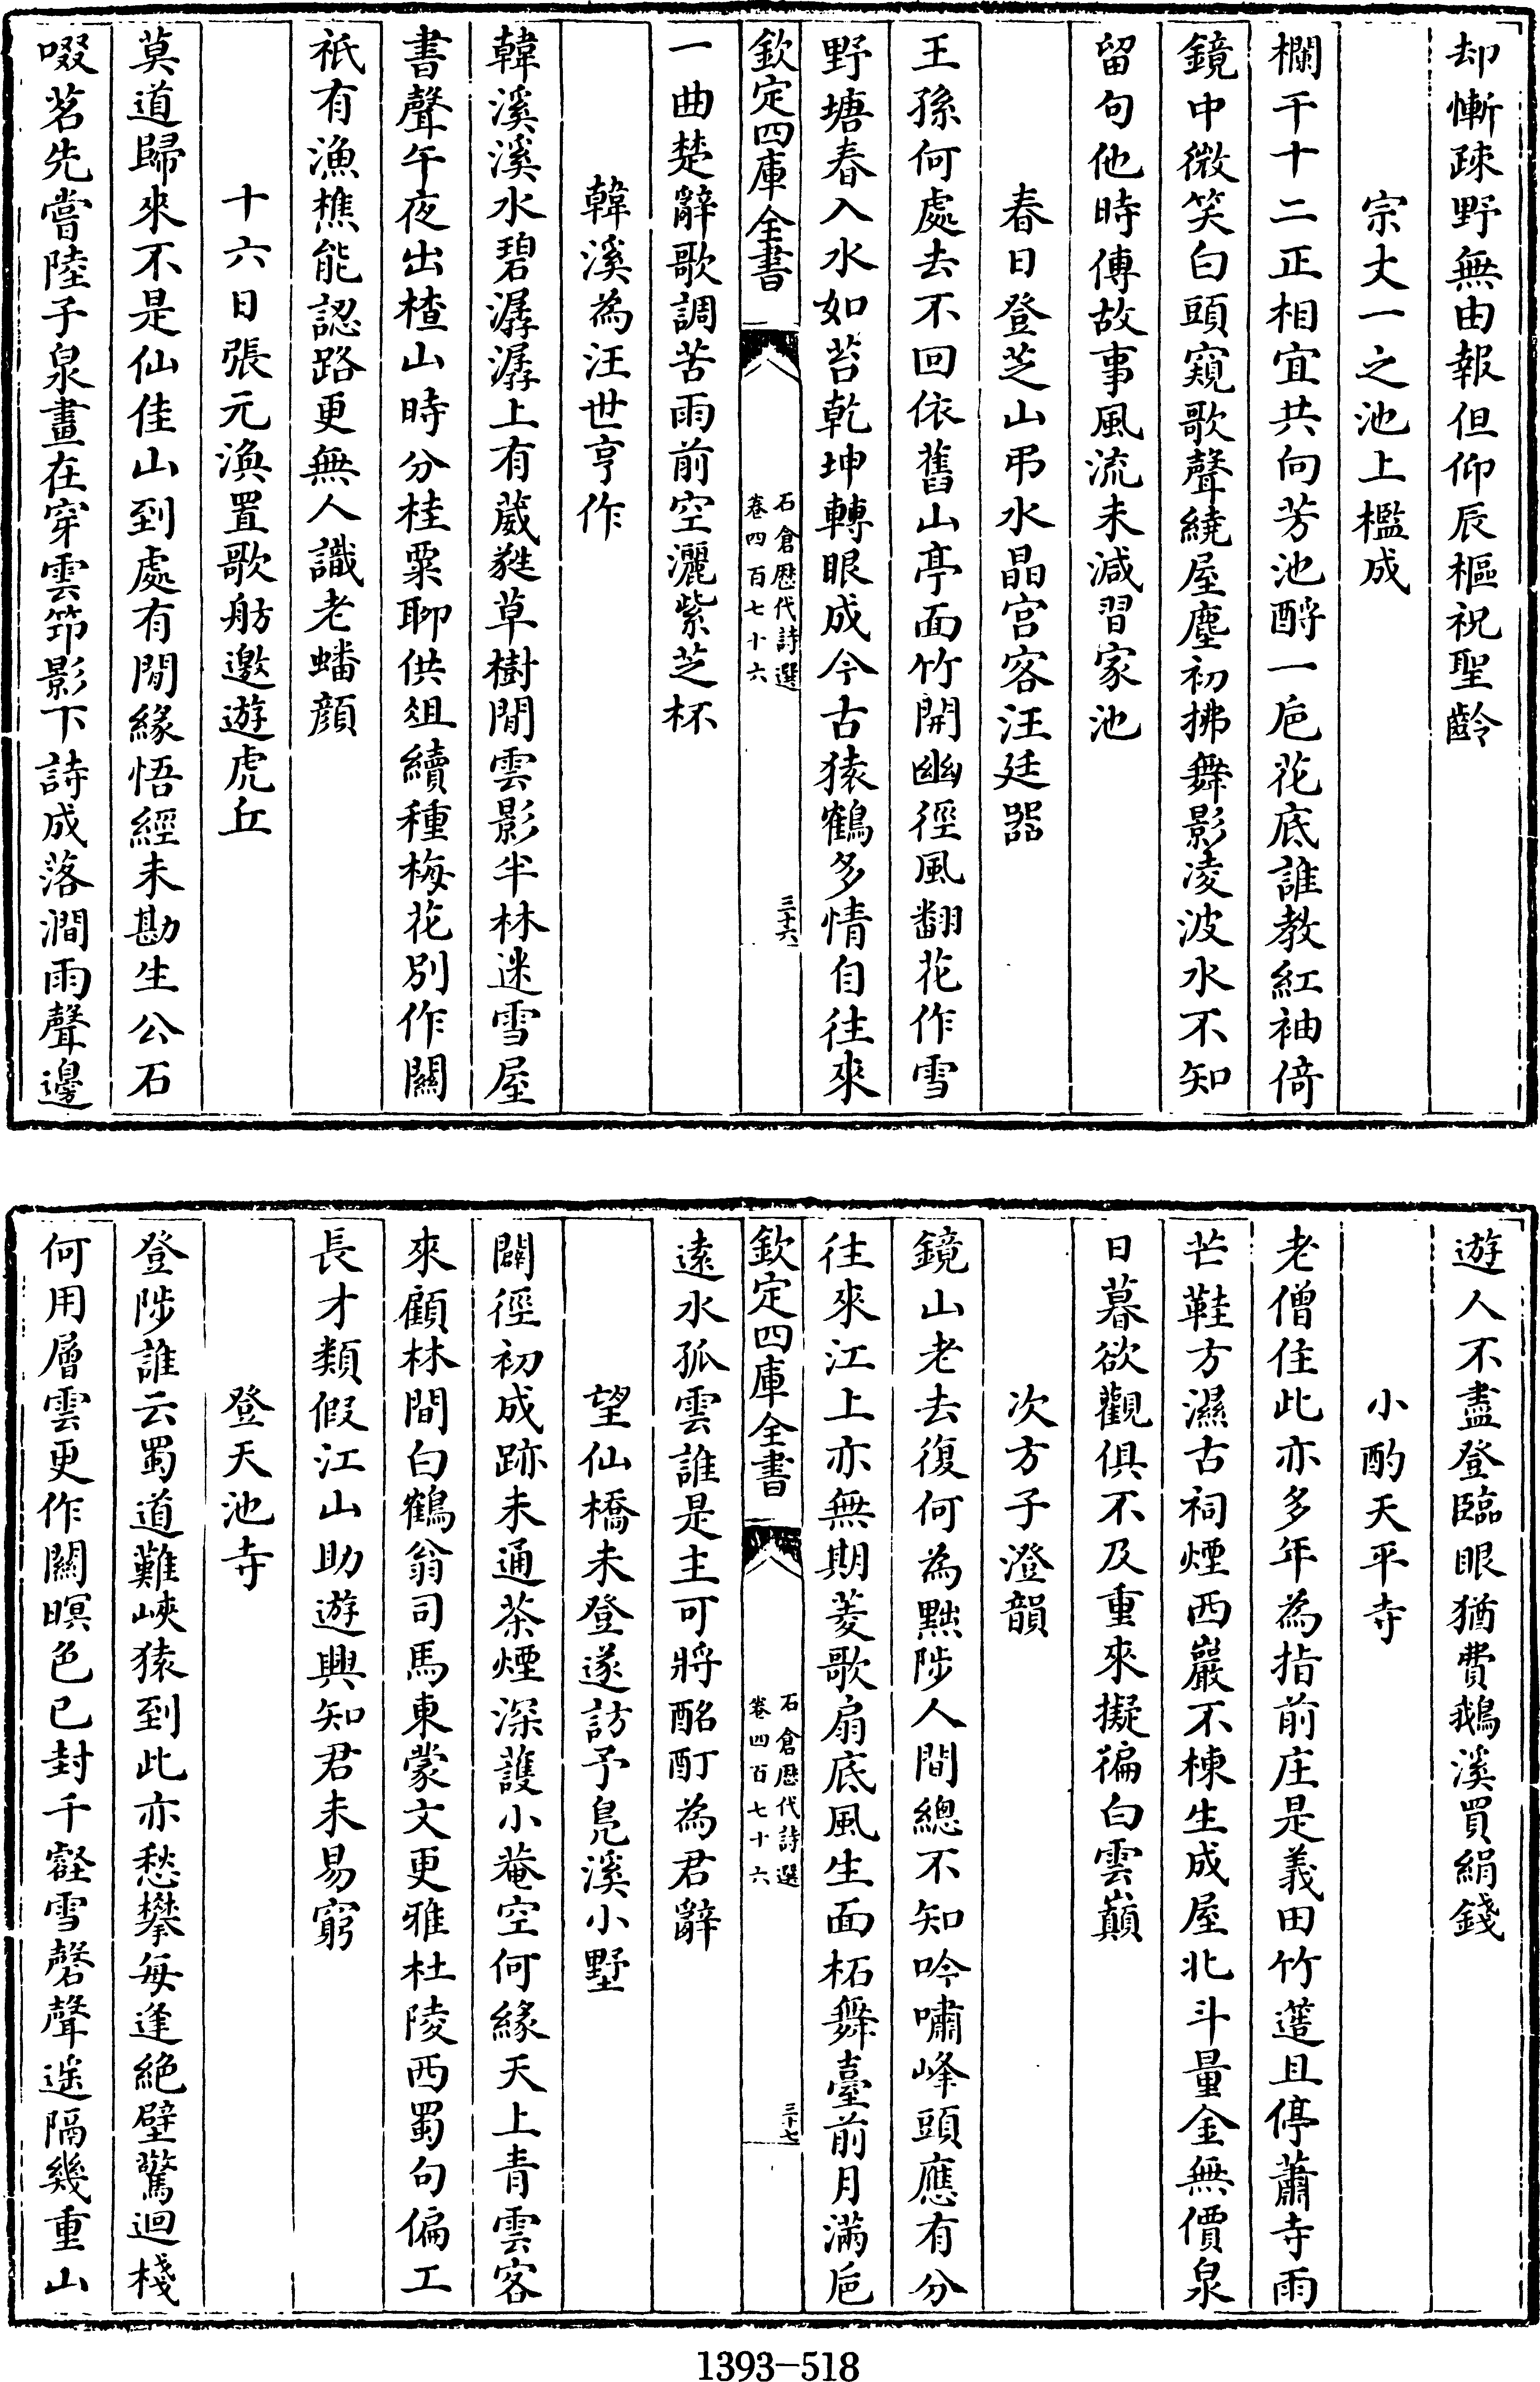 却慚疎野無由報但仰辰樞祝聖齡
宗丈一之池上檻成
欄干十二正相宜共向芳池酹一卮花底誰教紅袖倚
鏡中微笑白頭窺歌聲繞屋塵初拂舞影凌波水不知
留句他時傳故事風流未減習家池
春日登芝山弔水晶宫客汪廷器
王孫何處去不回依舊山亭面竹開幽徑風翻花作雪
野塘春入水如苔乾坤轉眼成今古猿鶴多情自往來
欽定四庫全書
石倉歴代詩選
卷四百七十六
三十六
一曲楚辭歌調苦雨前空灑紫芝杯
韓溪為汪世亨作
韓溪溪水碧潺潺上有葳蕤草樹閒雲影半林迷雪屋
書聲午夜出楂山時分桂粟聊供俎續種梅花別作關
祇有漁樵能認路更無人識老蟠顔
十六日張元渙置歌舫邀遊虎丘
莫道歸來不是仙佳山到處有閒緣悟經未勘生公石
啜茗先嘗陸子泉畫在穿雲筇影下詩成落澗雨聲邊
遊人不盡登臨眼猶費鵝溪買絹錢
小酌天平寺
老僧住此亦多年為指前庄是義田竹邊且停蕭寺雨
芒鞋方濕古祠煙西巖不棟生成屋北斗量金無價泉
日暮欲觀俱不及重來擬徧白雲巔
次方子澄韻
鏡山老去復何為黜陟人間總不知吟嘯峰頭應有分
往來江上亦無期菱歌扇底風生面柘舞臺前月滿卮
欽定四庫全書
石倉歴代詩選
卷四百七十六
三十七
遠水孤雲誰是主可將酩酊為君辭
望仙橋未登遂訪予鳬溪小墅
闢徑初成跡未通茶煙深護小菴空何緣天上青雲客
來顧林間白鶴翁司馬東蒙文更雅杜陵西蜀句偏工
長才類假江山助遊興知君未易窮
登天池寺
登陟誰云蜀道難峽猿到此亦愁攀每逢絶壁驚迴棧
何用層雲更作關暝色已封千壑雪磬聲遥隔幾重山
1393-518